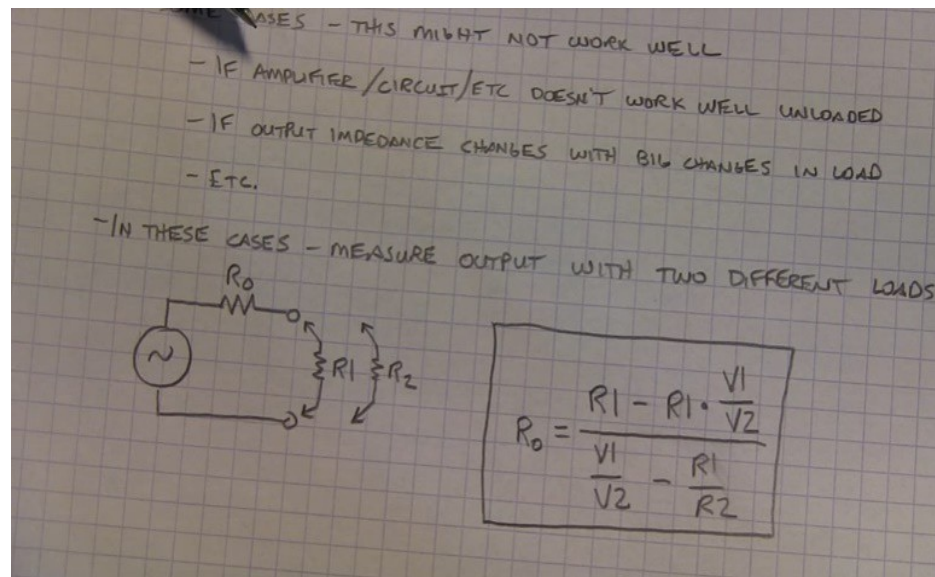 CASES - THIS MIGHT NOT WORK WELL
- IF AMPLIFIER/CIRCUIT/ETC DOESN'T WORK WELL UNLOADED
- IF OUTPUT IMPEDANCE CHANGES WITH BIG CHANGES IN LOAD
- ETC.
- IN THESE CASES - MEASURE OUTPUT WITH TWO DIFFERENT LOADS
R0
R1 R2
R0 = (R1 - R1 · V1/V2) / (V1/V2 - R1/R2)